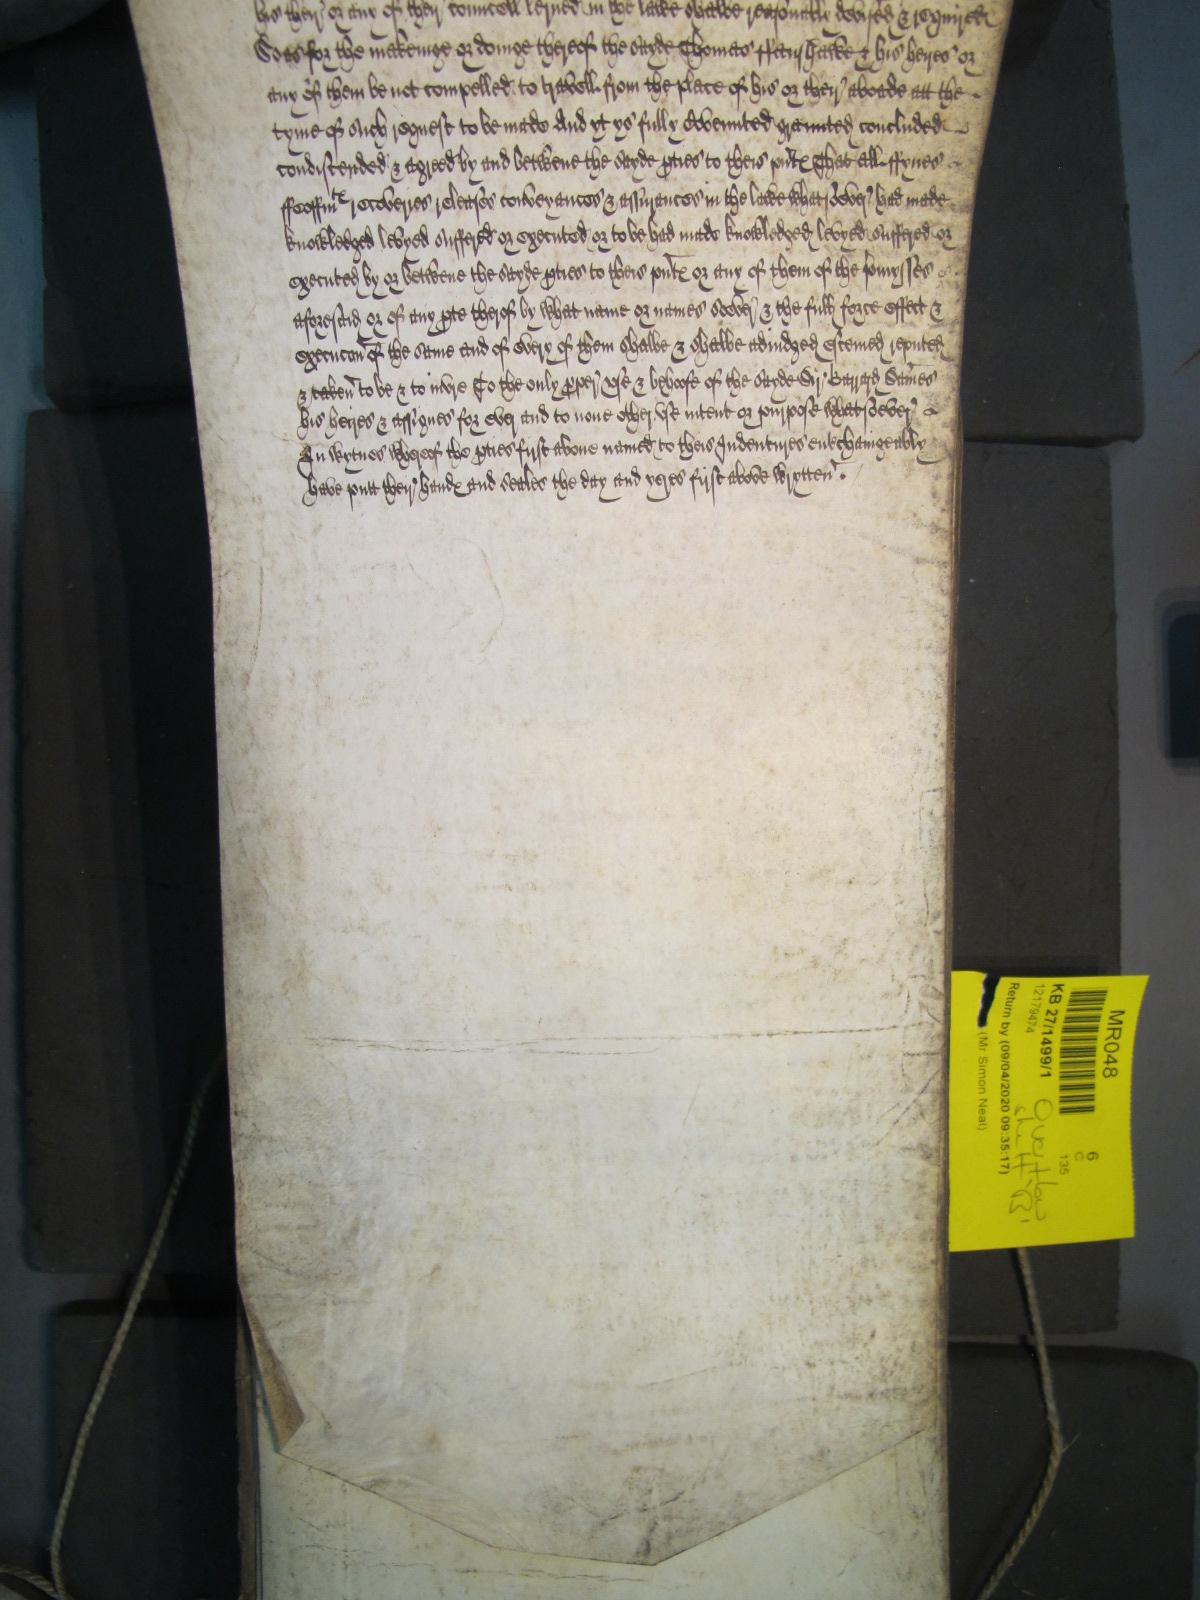 his their or any of their councell lerned in the lawe shalbe reasonably devysed & requyred
So as for the makeinge or doinge thereof the sayde Thomas & his heires or
any of them be not compelled to travell from the place of his or their aboade att the
tyme of such request to be made And yt ys fully Covenñted graunted concluded
condiscended & agreed by and betwene the sayde pties to theis pnts That all ffynes
ffeoffmts recoveries releases conveyances & assurances in the lawe whatsoever had made
knowledged levyed suffered or executed or to be had made knowledged levyed suffered or
executed by or betwene the sayde pties to theis pnts or any of them of the pmysses
aforesaid or of any pte therof by what name or names soever & the full force effect &
execucon of the same and of every of them shalbe & shalbe adiudged estemed reputed
& taken to be & to inure To the only pper use & behoofe of the sayde Sir
his heires & assignes for ever and to none other use intent or purpose whatsoever
In wytnes whereof the pties first above named to theis Indentures enterchaingeably
have putt their hands and seales the day and yeres first above wrytten.
MR048
6
C
135
KB 27/1499/1
12179474
Overflow
Return by (09/04/2020 09:35:17)
(Mr Simon Neal)